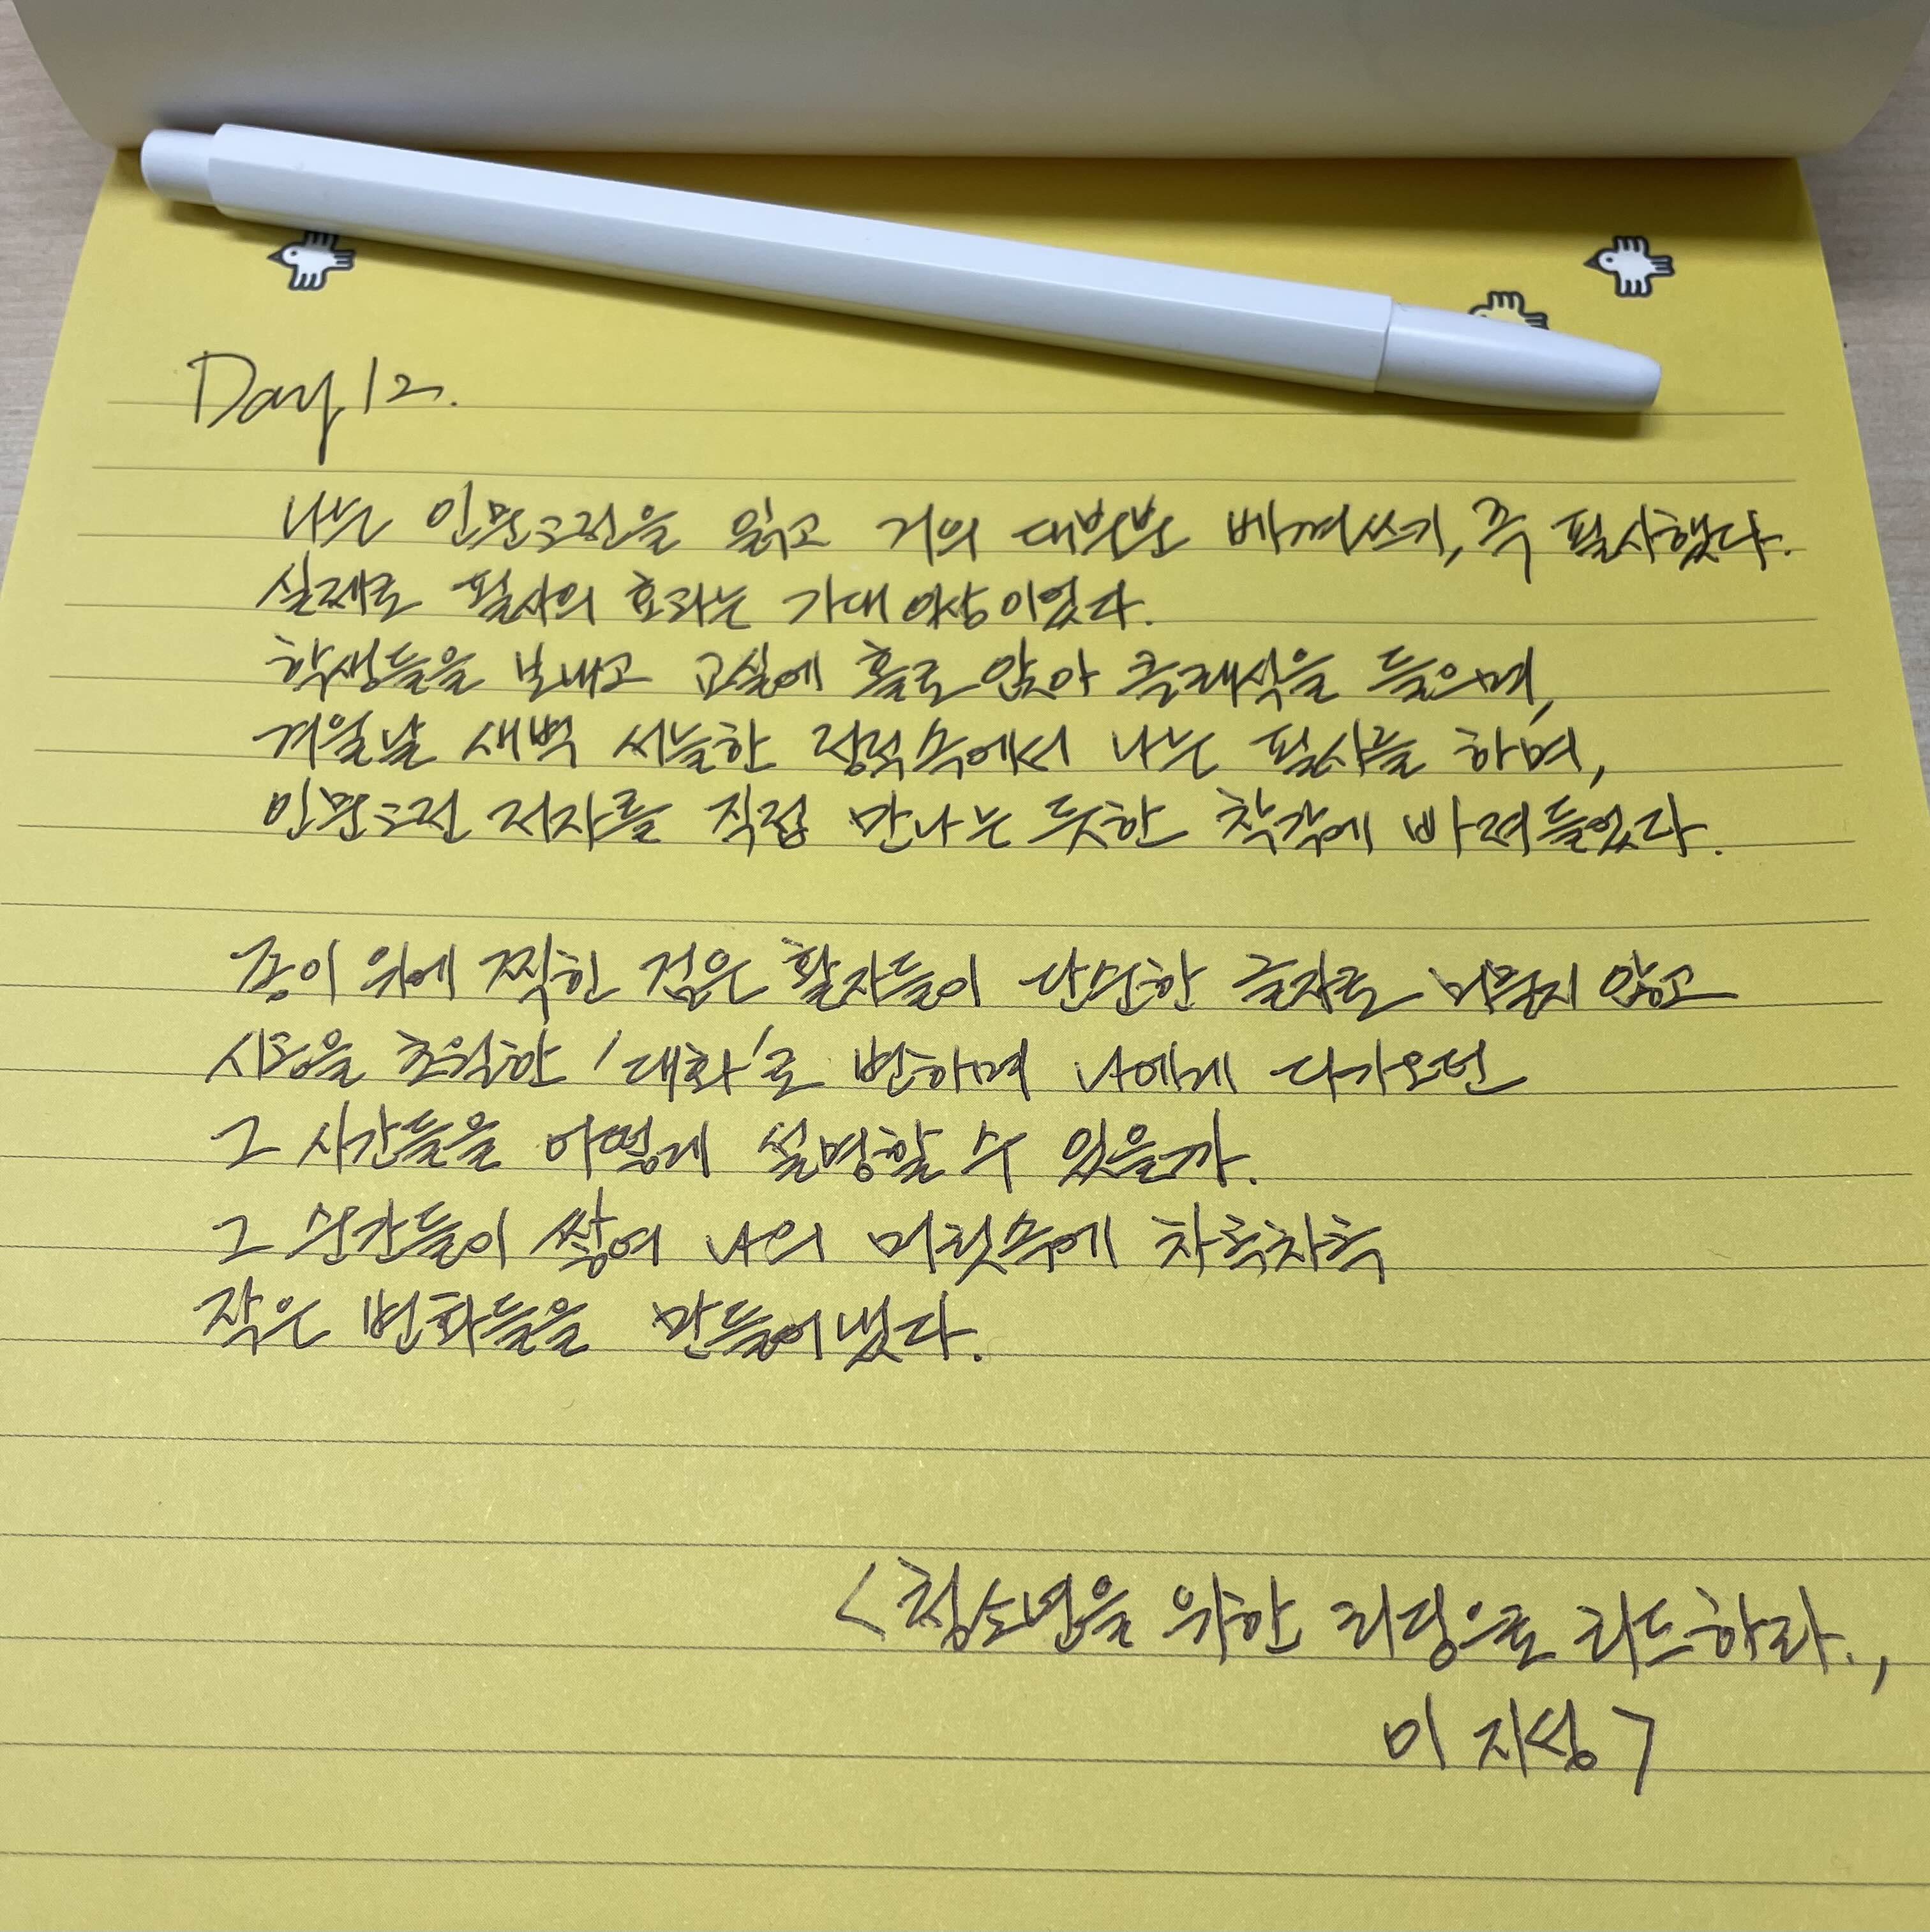 Day 12.
나는 인문고전을 읽고 거의 대부분 베껴쓰기, 즉 필사했다.
실제로 필사의 효과는 기대 이상이었다.
학생들을 보내고 교실에 홀로 앉아 클래식을 들으며,
겨울날 새벽 서늘한 정적속에서 나는 필사를 하며,
인문고전 저자를 직접 만나는 듯한 착각에 빠져들었다.
종이 위에 찍힌 검은 활자들이 단순한 글자로 머물지 않고
시공을 초월한 '대화'로 변하며 나에게 다가오던
그 시간들을 어떻게 설명할 수 있을까.
그 순간들이 쌓여 나의 머릿속에 차곡차곡
작은 변화들을 만들어냈다.
<청소년을 위한 리딩으로 리드하라.,
이지성>